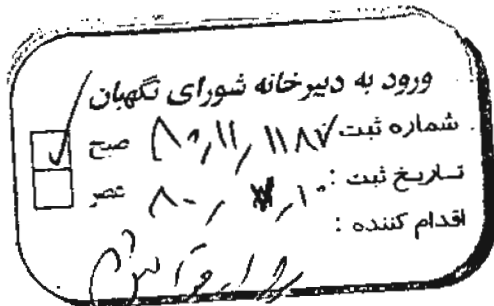 ورود به دبیرخانه شورای نگهبان
شماره ثبت ۸۰٫۱۱٫۱۱۸۷ صبح
تاریخ ثبت : ۸۰٫ ٫۱۰ عصر
اقدام کننده :